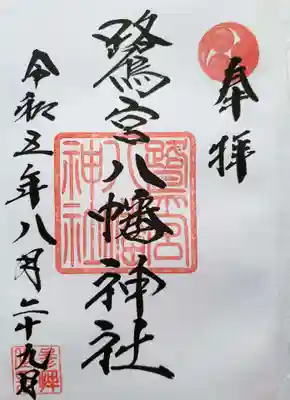 奉拝
鷺宮八幡神社
令和五年八月二十九日
鷺宮
八幡
神社